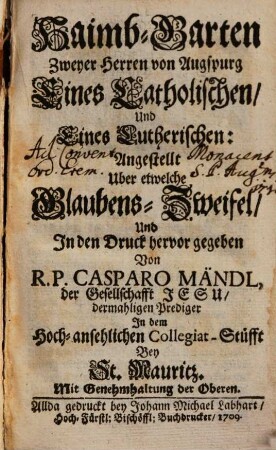 Haimb-Garten
Zweyer Herren von Augspurg
Eines Catholischen/
Und
Eines Lutherischen:
Ad Convent Angestellt Monacens
ord. Erem. Uber etwelche S. P. Augni
Glaubens-Zweifel/
Und
In den Druck hervor gegeben
Von
R. P. CASPARO MÄNDL,
der Gesellschafft JESU/
dermahligen Prediger
In dem
Hoch-ansehlichen Collegiat-Stüfft
Bey
St. Mauritz.
Mit Genehmhaltung der Oberen.
Allda gedruckt bey Johann Michael Labhart/
Hoch-Fürstl: Bischöffl: Buchdrucker/ 1709.